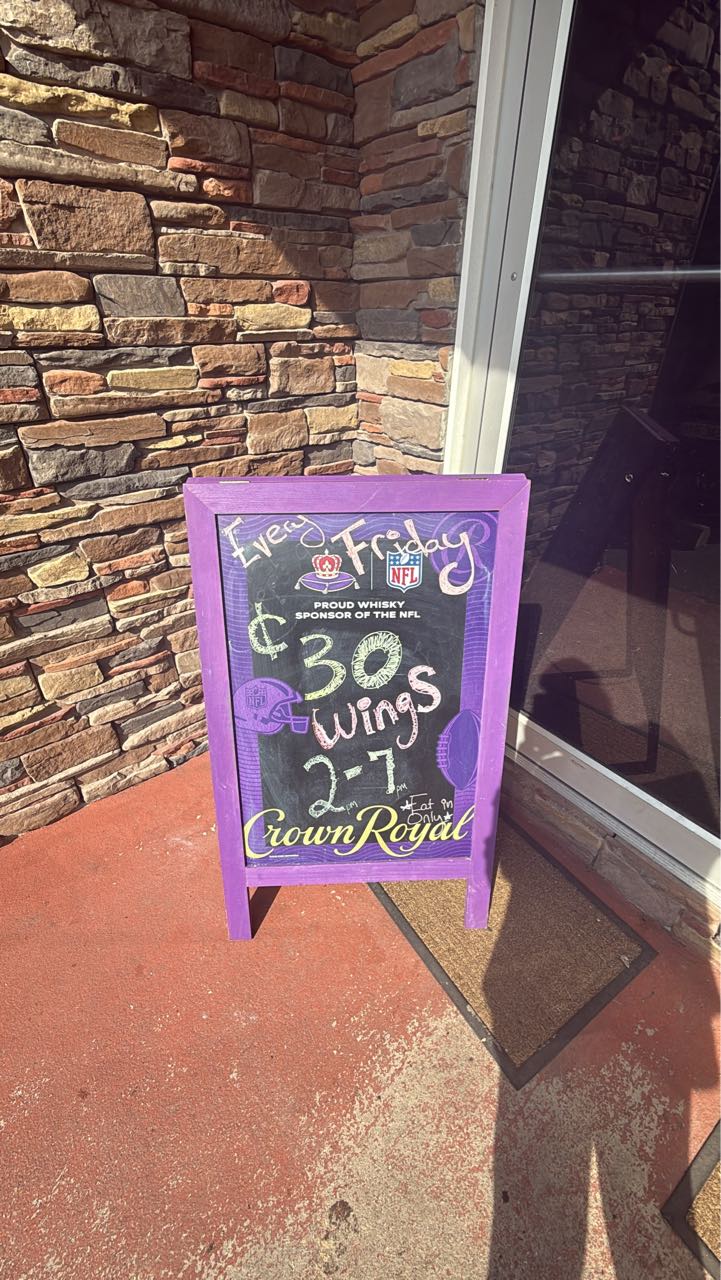 Every Friday
NFL
PROUD WHISKY
SPONSOR OF THE NFL
¢
30
Wings
NFL
2-7
pm PM
★Eat in
Only★
Crown Royal